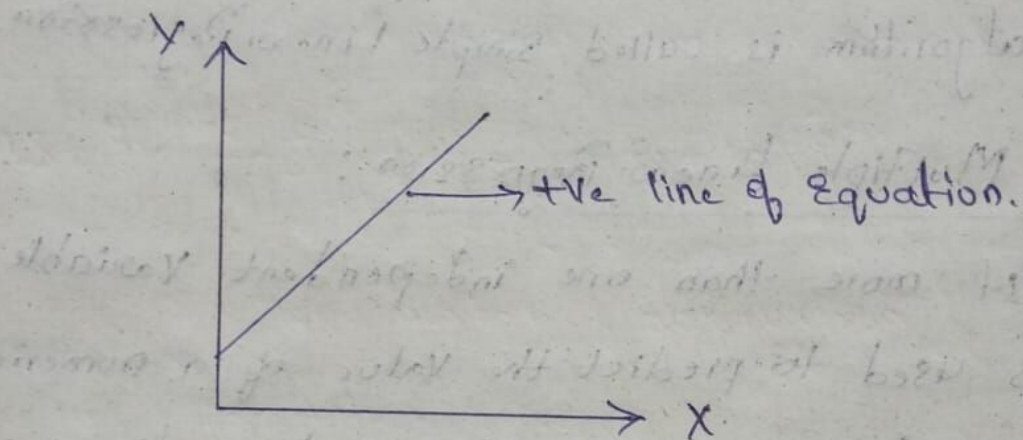 Y
+ve line of Equation.
X